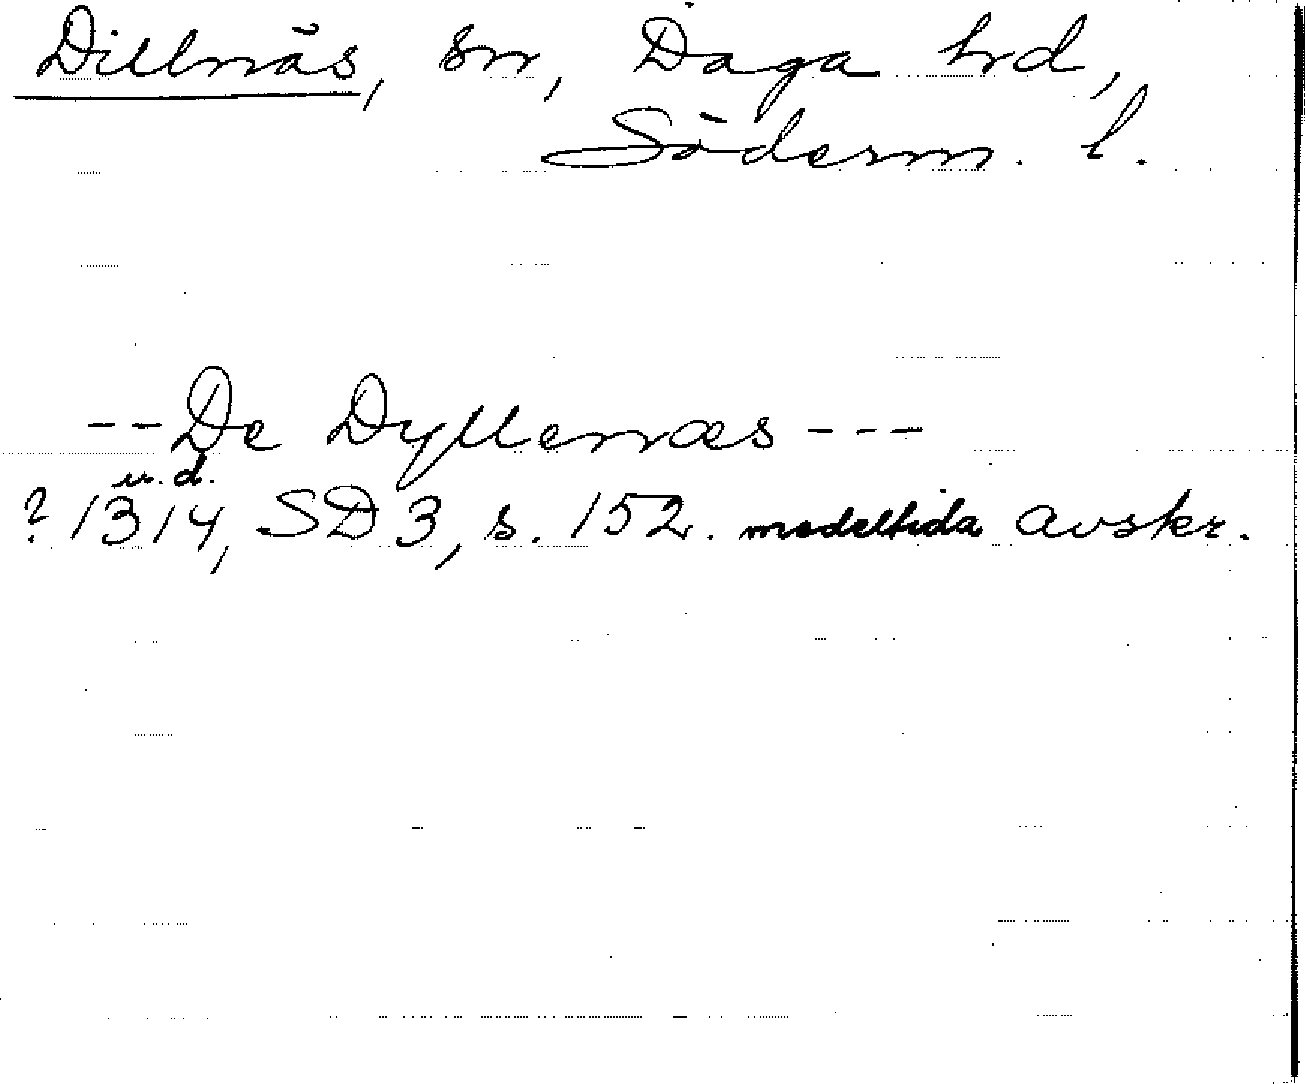 Dillnäs, sn, Daga hrd,
Söderm. l.
--De Dyllenæs---
u. d.
? 1314, SD 3, s. 152. medeltida avskr.